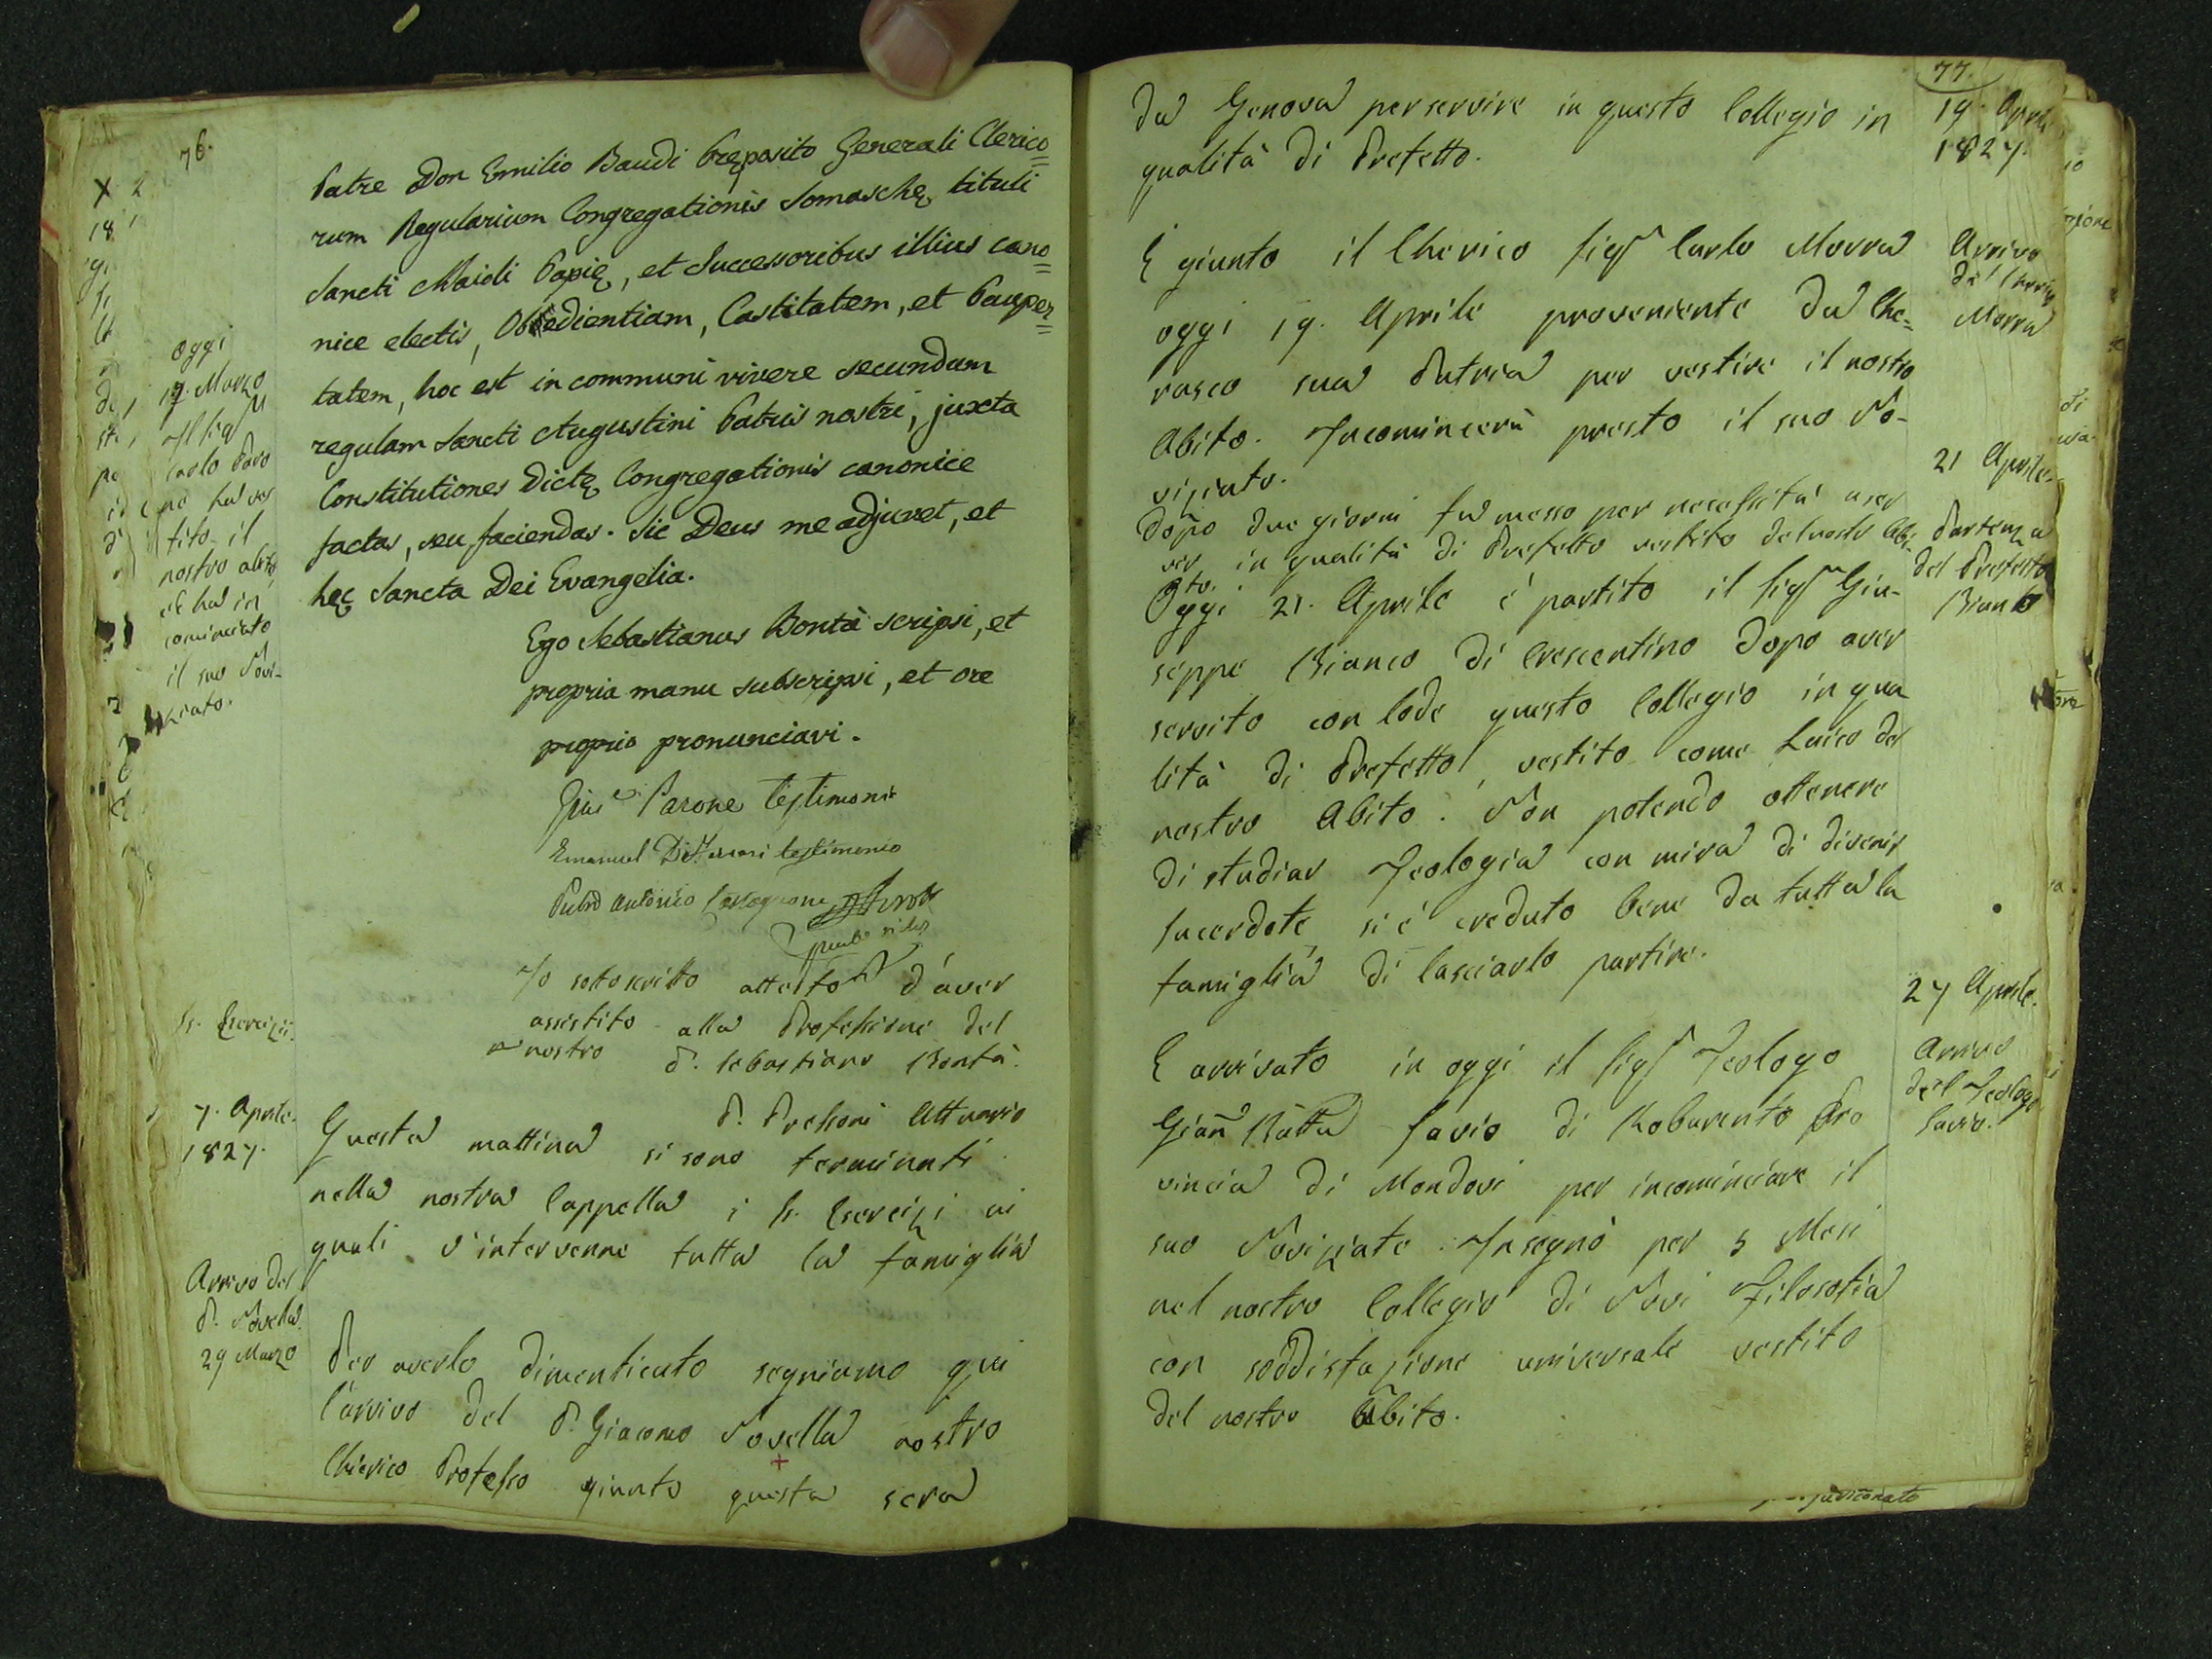 76.
Patre Don Emilio Baudi Pręposito Generali Clerico=
rum Regularium Congregationis Somaschę tituli
Sancti Maioli Papię, et Successoribus illius cano=
nice electis, Obedientiam, Castitatem, et Pauper=
tatem, hoc est in communi vivere secundum
regulam Sancti Augustini Patris nostri, juxta
Constitutiones Dictę Congregationis canonice
factas, seu faciendas. Sic Deus me adjuvet, et
hęc Sancta Dei Evangelia.
Ego Sebastianus Bontà scripsi, et
propria manu subscripsi, et ore
proprio pronunciavi.
Parone testimonio
Emanuel testimonio
Antonio
Io sottoscritto attesto d'aver
assistito alla Professione del
nostro P. Sebastiano Bontà.
P. Pressoni Attuario
oggi
17. Marzo
Il Sigr
Carlo Paro
ne ha ves
tito il
nostro abito,
et ha in
cominciato
il suo Novi-
ziato.
SS. Esercizii.
7. Aprile.
1827.
Questa mattina si sono terminati
nella nostra Cappella i SS. Esercizi ai
quali v'intervenne tutta la famiglia
Arrivo del
P. Novella.
29 Marzo
Per averlo dimenticato segniamo qui
l'arrivo del P. Giacomo Novella nostro
Chierico Professo giunto questa sera
77.
da Genova per servire in questo Collegio in
qualità di Prefetto.
19. Aprile
1827.
È giunto il Cherico Sigr Carlo Morra
oggi 19. Aprile proveniente da Che-
rasco sua Patria per vestire il nostro
Abito. Incomincerà presto il suo No-
viziato.
Arrivo
del Cherico
Morra
Dopo due giorni fu messo per necessità
in qualità di Prefetto vestito del nostro Abi-
to.
21 Aprile.
Partenza
del Prefetto
Bianco
Oggi 21. Aprile è partito il Sigr Giu-
seppe Bianco di Crescentino dopo aver
servito con lode questo Collegio in qua
lità di Prefetto, vestito come Laico del
nostro Abito. Non potendo ottenere
di studiar Teologia con mira di divenir
Sacerdote, si è creduto bene da tutta la
famiglia di lasciarlo partire.
27 Aprile.
Arrivo
del Teologo
Savio.
È arrivato in oggi il Sigr Teologo
Giañ Batta Savio di Roburento Pro
vincia di Mondovi per incominciare il
suo Noviziato. Insegnò per 5 Mesi
nel nostro Collegio di Novi Filosofia
con soddisfazione universale vestito
del nostro Abito.